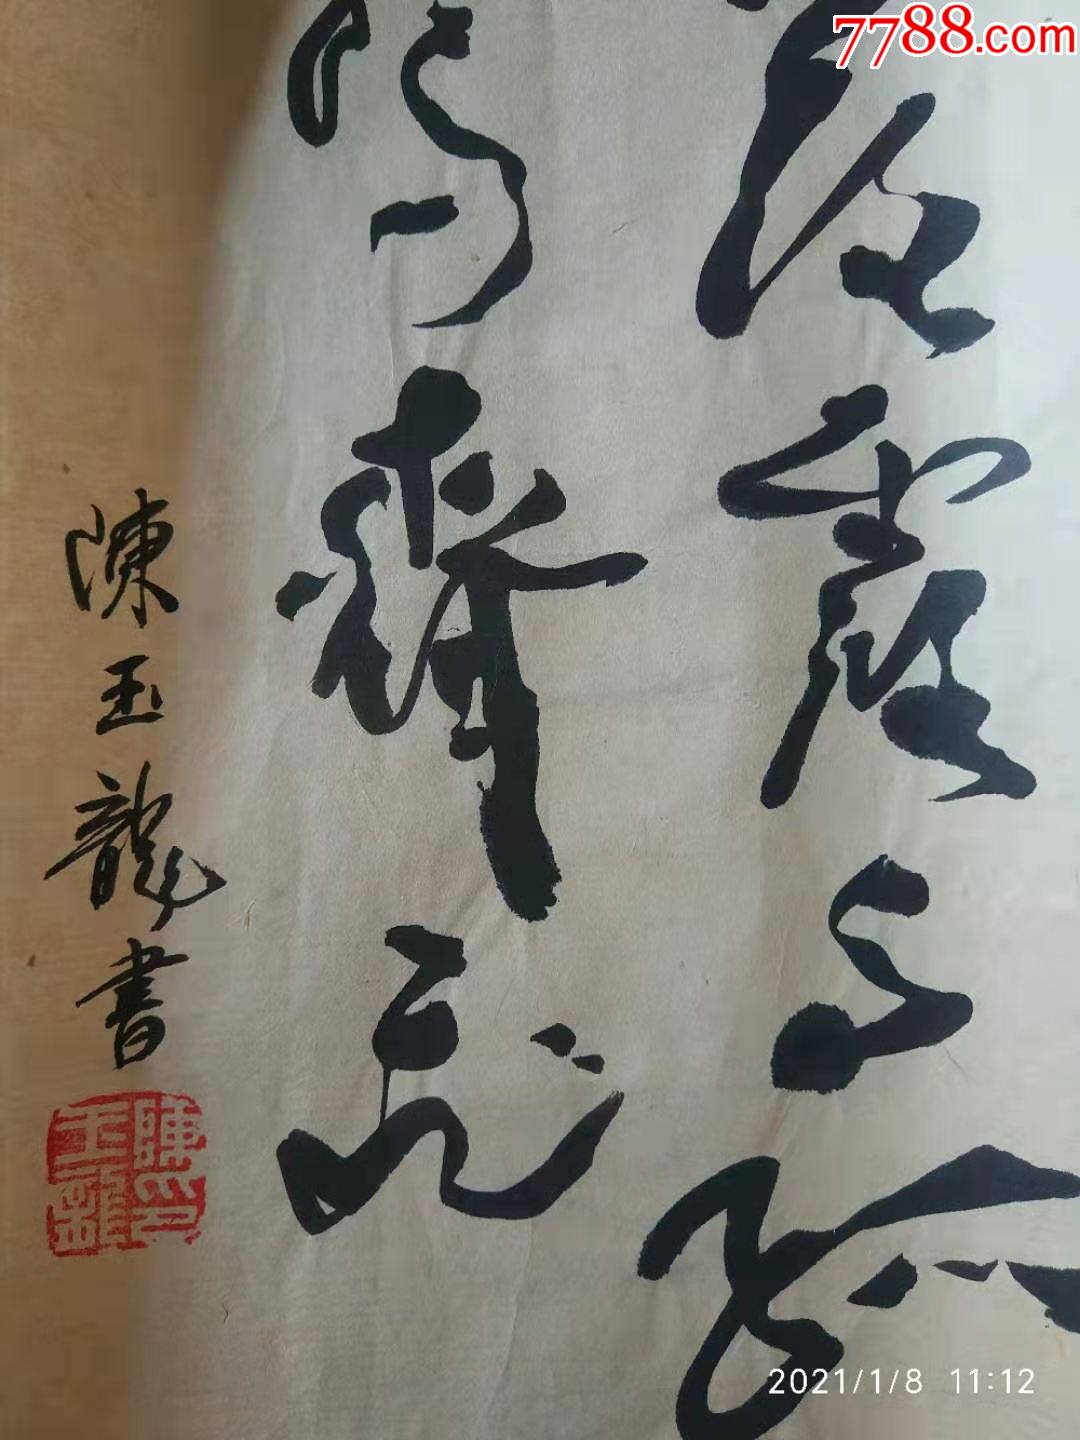 7788.com
落霞与孤
鹜齐飞
陳玉龍書
陳玉龍印
2021/1/8 11:12